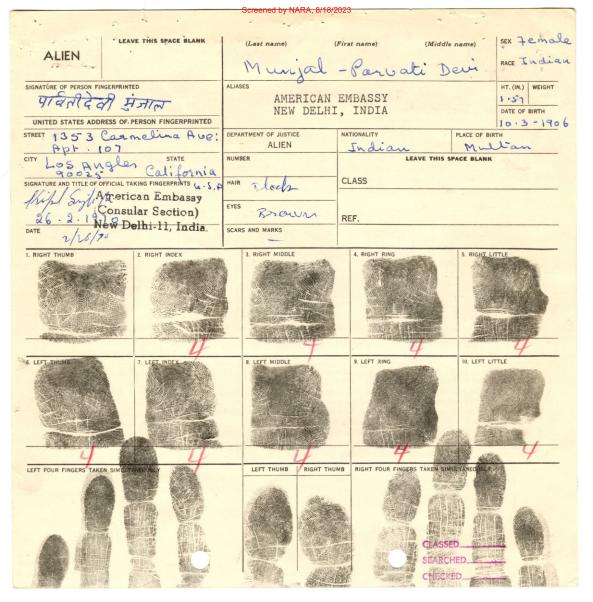 Screened by NARA, 8/18/2023
ALIEN
LEAVE THIS SPACE BLANK
(Last name) (First name) (Middle name)
Munjal - Parvati Devi
SEX Female
RACE Indian
SIGNATURE OF PERSON FINGERPRINTED
पार्वतीदेवी मुंजाल
ALIASES
AMERICAN EMBASSY
NEW DELHI, INDIA
HT. (IN.) WEIGHT
1.57
DATE OF BIRTH
10.3-1906
UNITED STATES ADDRESS OF PERSON FINGERPRINTED
STREET 1353 Carmelina Ave:
Apt. 107
CITY STATE
Los Angles California
90025 U.S.A
DEPARTMENT OF JUSTICE
ALIEN
NATIONALITY
Indian
PLACE OF BIRTH
Multan
NUMBER
LEAVE THIS SPACE BLANK
SIGNATURE AND TITLE OF OFFICIAL TAKING FINGERPRINTS
American Embassy
(Consular Section)
New Delhi-11, India.
26.2.19
DATE 2/26/70
HAIR
CLASS
EYES Brown
REF.
SCARS AND MARKS
—
1. RIGHT THUMB
2. RIGHT INDEX
3. RIGHT MIDDLE
4. RIGHT RING
5. RIGHT LITTLE
4 4 4 4
6. LEFT THUMB
7. LEFT INDEX
8. LEFT MIDDLE
9. LEFT RING
10. LEFT LITTLE
4 4 4 4 4
LEFT FOUR FINGERS TAKEN SIMULTANEOUSLY
LEFT THUMB
RIGHT THUMB
RIGHT FOUR FINGERS TAKEN SIMULTANEOUSLY
CLASSED
SEARCHED
CHECKED